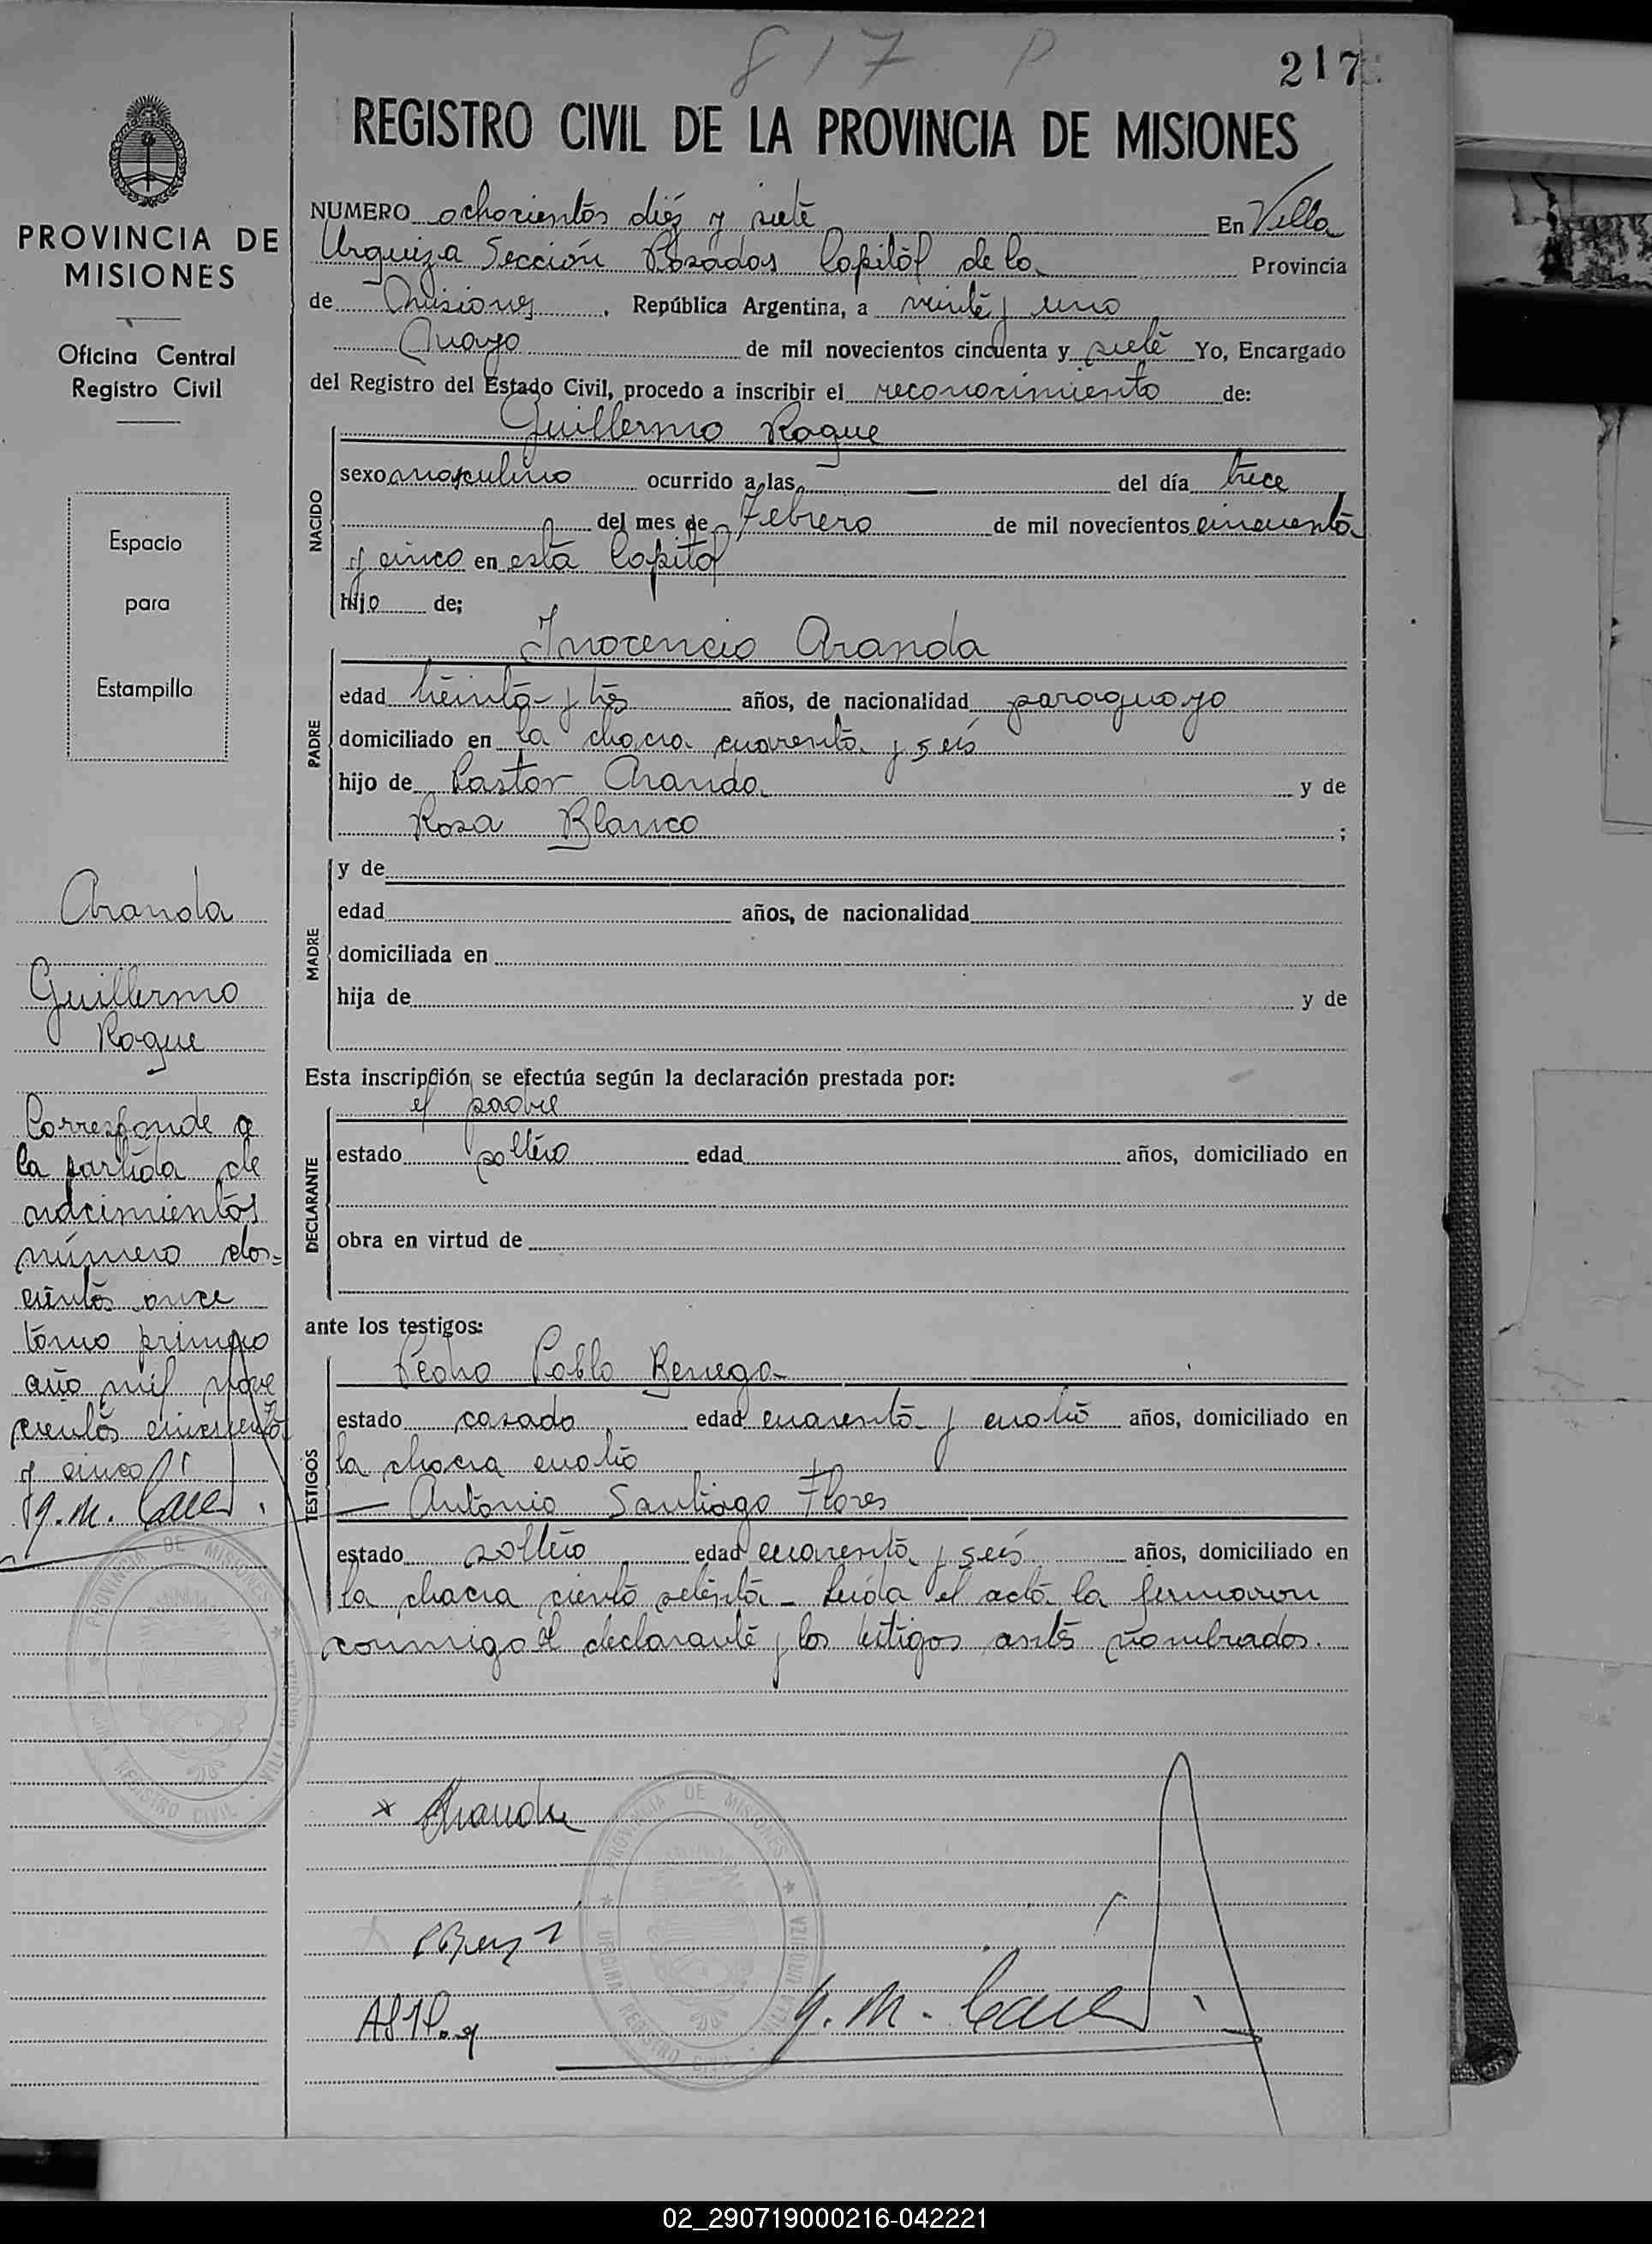 817 P
217
REGISTRO CIVIL DE LA PROVINCIA DE MISIONES
PROVINCIA DE
MISIONES
Oficina Central
Registro Civil
Espacio
para
Estampilla
Aranda
Guillermo
Roque
Corresponde a
la partida de
nacimientos
número dos-
cientos once
tomo primero
año mil nove
cientos cincuenta
y cinco
PROVINCIA DE MISIONES
REGISTRO CIVIL
NUMERO ochocientos diez y siete En Villa
Urquiza Sección Posadas Capital de la Provincia
de Misiones, República Argentina, a veinte y uno
Mayo de mil novecientos cincuenta y siete Yo, Encargado
del Registro del Estado Civil, procedo a inscribir el reconocimiento de:
Guillermo Roque
NACIDO
sexo masculino ocurrido a las — del día trece
del mes de Febrero de mil novecientos cincuenta
y cinco en esta Capital
hijo de;
Inocencio Aranda
PADRE
edad treinta y tres años, de nacionalidad paraguayo
domiciliado en la chacra cuarenta y seis
hijo de Pastor Aranda y de
Rosa Blanco ;
MADRE
y de
edad años, de nacionalidad
domiciliada en
hija de y de
Esta inscripción se efectúa según la declaración prestada por:
el padre
DECLARANTE
estado soltero edad años, domiciliado en
obra en virtud de
ante los testigos:
Pedro Pablo Benega
TESTIGOS
estado casado edad cuarenta y cuatro años, domiciliado en
la chacra cuatro
— Antonio Santiago Flores
estado soltero edad cuarenta y seis años, domiciliado en
la chacra ciento setenta - Leída el acta la firmaron
conmigo el declarante y los testigos antes nombrados.
x Aranda
PROVINCIA DE MISIONES
OFICINA REGISTRO CIVIL
VILLA URQUIZA
02_290719000216-042221